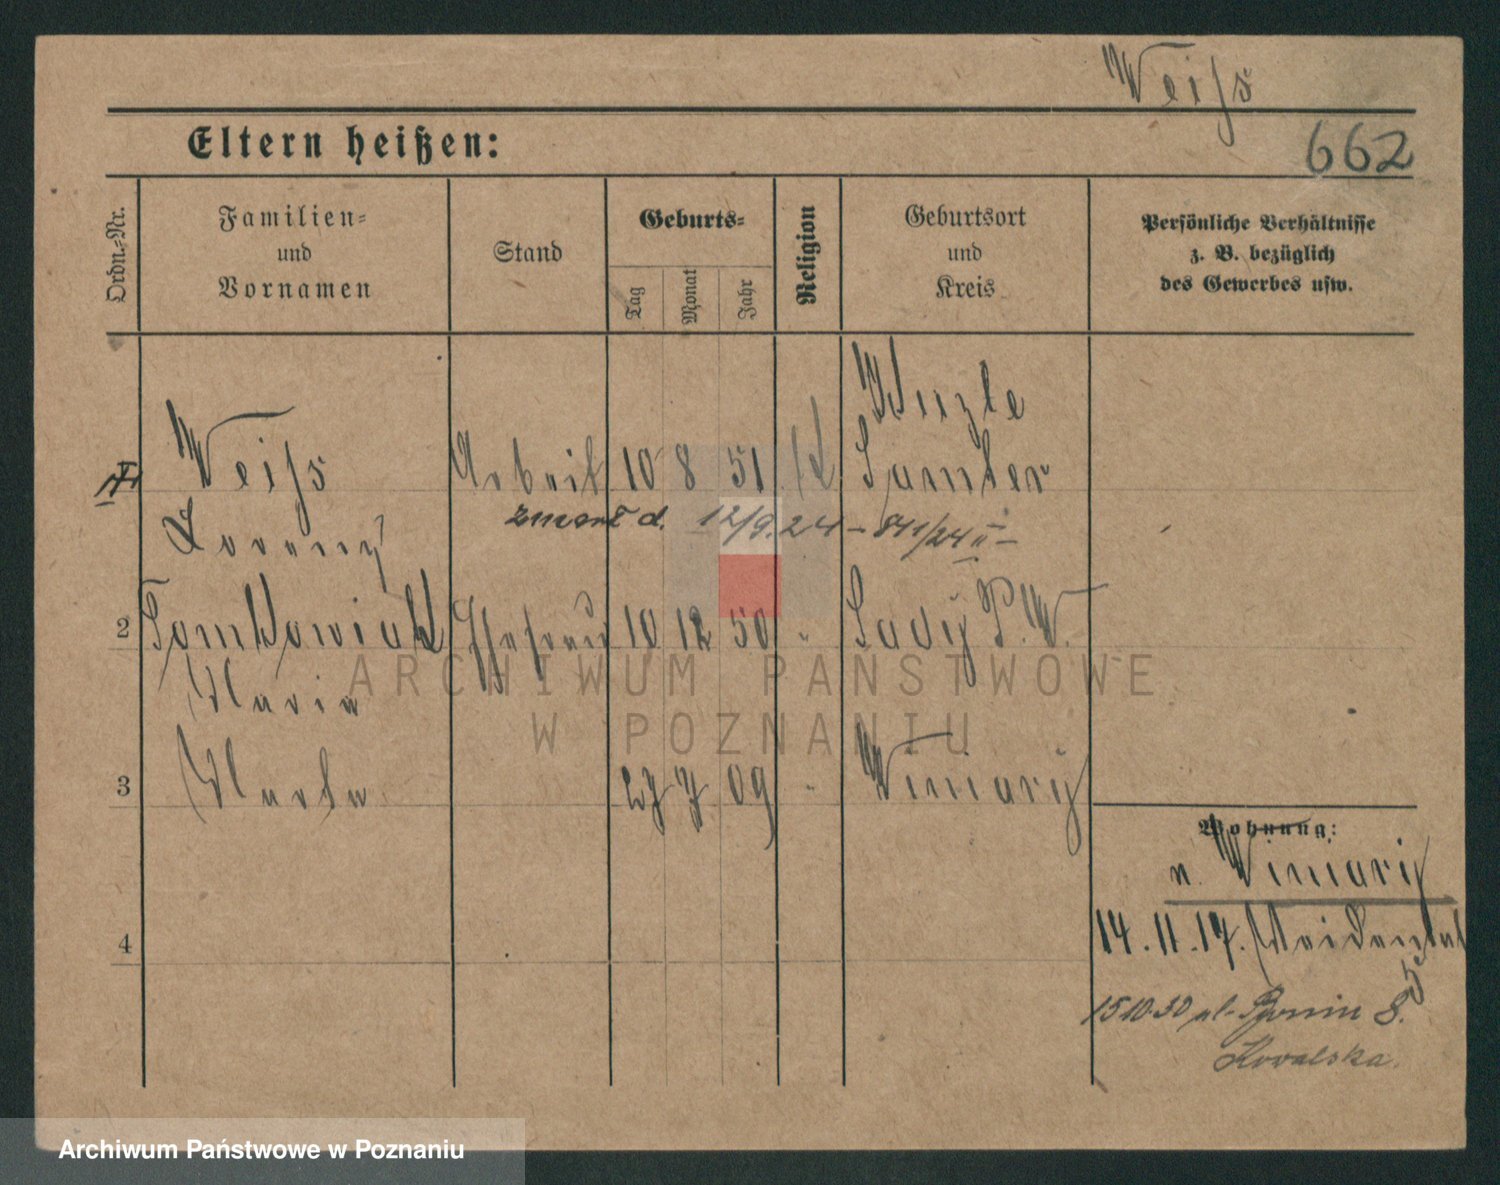 Weiß
Eltern heißen:
662
Ordn.-Nr.
Familien-
und
Vornamen
Stand
Geburts-
Tag
Monat
Jahr
Religion
Geburtsort
und
Kreis
Persönliche Verhältnisse
z. B. bezüglich
des Gewerbes usw.
Weiß Arbeit 10 8 51 Samter
Lorenz
zmarł d. 12/9.24 – 841/24 II –
2 Tomkowiak Ehefrau 10 12 50 " Sady P. W.
Maria
3 Martha 27 7 09 " Winiary
4
Wohnung:
n. Winiary
14.11.17. Weidental
5
15 10 30 ul. 8.
Kowalska.
ARCHIWUM PAŃSTWOWE
W POZNANIU
Archiwum Państwowe w Poznaniu